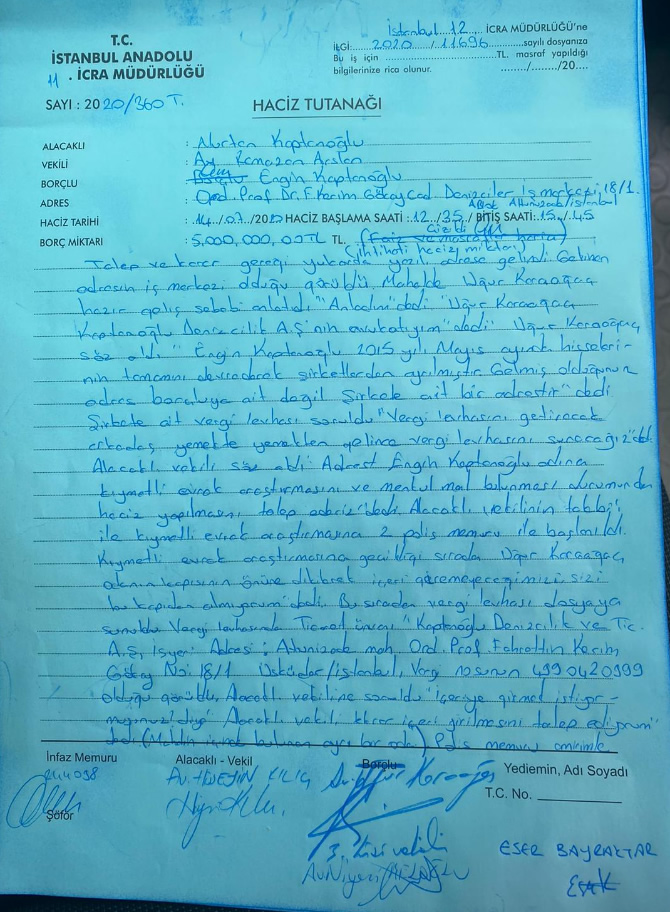 T.C.
İSTANBUL ANADOLU
11 . İCRA MÜDÜRLÜĞÜ
SAYI : 2020/360 T.
İstanbul 12 İCRA MÜDÜRLÜĞÜ'ne
İLGİ: 2020 / 11696 sayılı dosyanıza
Bu iş için TL. masraf yapıldığı
bilgilerinize rica olunur. ....../....../20....
HACİZ TUTANAĞI
ALACAKLI : Kaptanoğlu
VEKİLİ : Av. Ramazan Arslan
BORÇLU : Engin Kaptanoğlu
ADRES : Ord. Prof. Dr. F. Kerim Gökay Cad. Denizciler İş merkezi 18/1.
Altunizade/İstanbul
HACİZ TARİHİ : 14../07./2020 HACİZ BAŞLAMA SAATİ : 12./35./ BİTİŞ SAATİ: 15../.45
BORÇ MİKTARI : 5.000,000,00TL TL. (Faiz ve masraflar hariç)
(İhtihati haciz miktarı)
Talep ve karar gereği yukarıda yazılı adrese gelindi. Gelinen
adresin iş merkezi olduğu görüldü. Mahalde Uğur Karaağaç
hazır geliş sebebi anlatıldı "Anladım" dedi "Uğur Karaağaç
Kaptanoğlu Denizcilik A.Ş'nin avukatıyım" dedi" Uğur Karaağaç
söz aldı " Engin Kaptanoğlu 2015 yılı Mayıs ayında hisseleri-
nin tamamını devrederek şirketlerden ayrılmıştır Gelmiş olduğunun
adres borçluya ait değil Şirkete ait bir adrestir" dedi
Şirkete ait vergi levhası soruldu "Vergi levhasını getirecek
arkadaş yemekte yemekten gelince vergi levhasını sunacağız" dedi.
Alacaklı vekili söz aldı Adreste Engin Kaptanoğlu adına
kıymetli evrak araştırmasını ve menkul mal bulunması durumunda
haciz yapılmasını talep ederiz" dedi. Alacaklı vekilinin talebi
ile kıymetli evrak araştırmasına 2 polis memuru ile başlanıldı.
Kıymetli evrak araştırmasına geçildiği sırada Uğur Karaağaç,
odanın kapısının önüne dikilerek içeri giremeyeceğimizi sizi
bu kapıdan almıyorum" dedi. Bu sırada vergi levhası dosyaya
sunuldu Vergi levhasında Ticaret ünvanı "Kaptanoğlu Denizcilik ve Tic.
A.Ş, İşyeri Adresi; Altunizade mah. Ord. Prof. Fahrettin Kerim
Gökay No: 18/1 Üsküdar/İstanbul, Vergi nosunun 4990420999
olduğu görüldü, Alacaklı vekiline soruldu "içeriye girmek istiyor-
musunuz" diye Alacaklı vekili tekrar içeri girilmesini talep ediyorum"
dedi (Mahlin içinde bulunan ayrı bir oda) Polis memuru
İnfaz Memuru
244098
Şöför
Alacaklı - Vekil
Av. HÜSEYİN KILIÇ
Borçlu
Av. Uğur Karaağaç
Yediemin, Adı Soyadı
T.C. No.
3. kişi vekili
ESER BAYRAKTAR